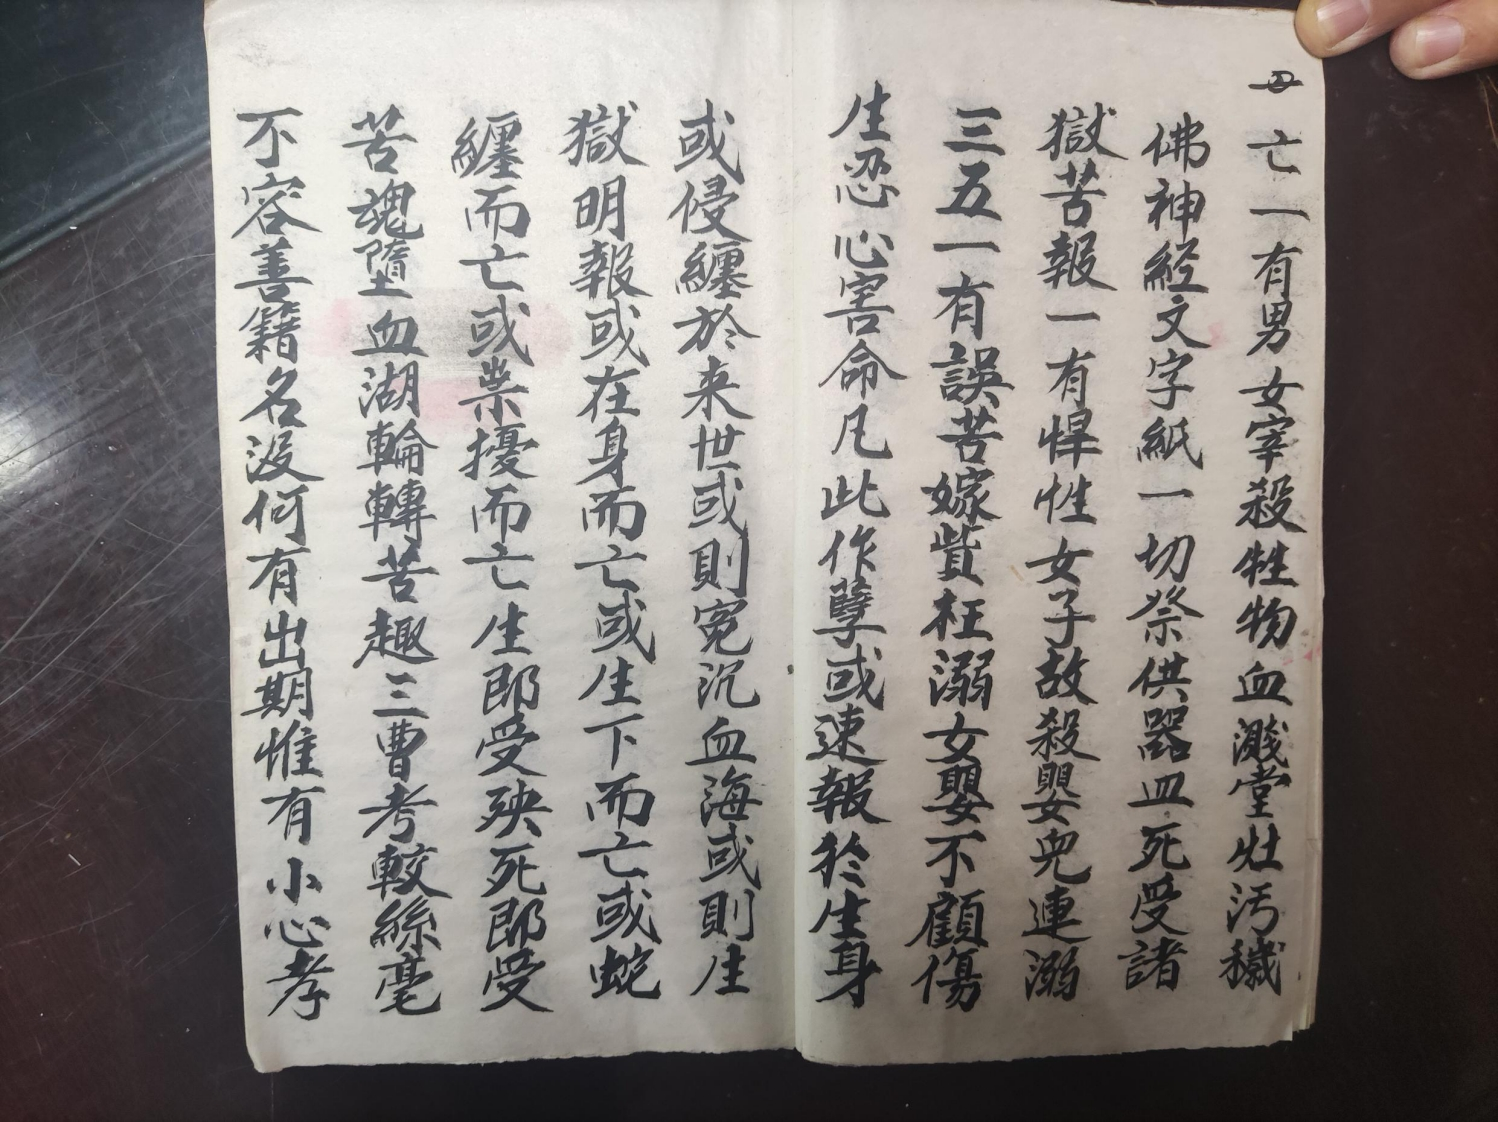 毋亡一有男女宰殺牲物血濺堂灶污穢
佛神經文字紙一切祭供器皿死受諸
獄苦報一有悍性女子故殺嬰兒連溺
三五一有誤苦嫁貲枉溺女嬰不顧傷
生忍心害命凡此作孽或速報於生身
或侵纏於来世或則冤沉血海或則生
獄明報或在身而亡或生下而亡或蛇
纏而亡或祟擾而亡生即受殃死即受
苦魂墮血湖輪轉苦趣三曹考較絲毫
不容善籍名没何有出期惟有小心孝